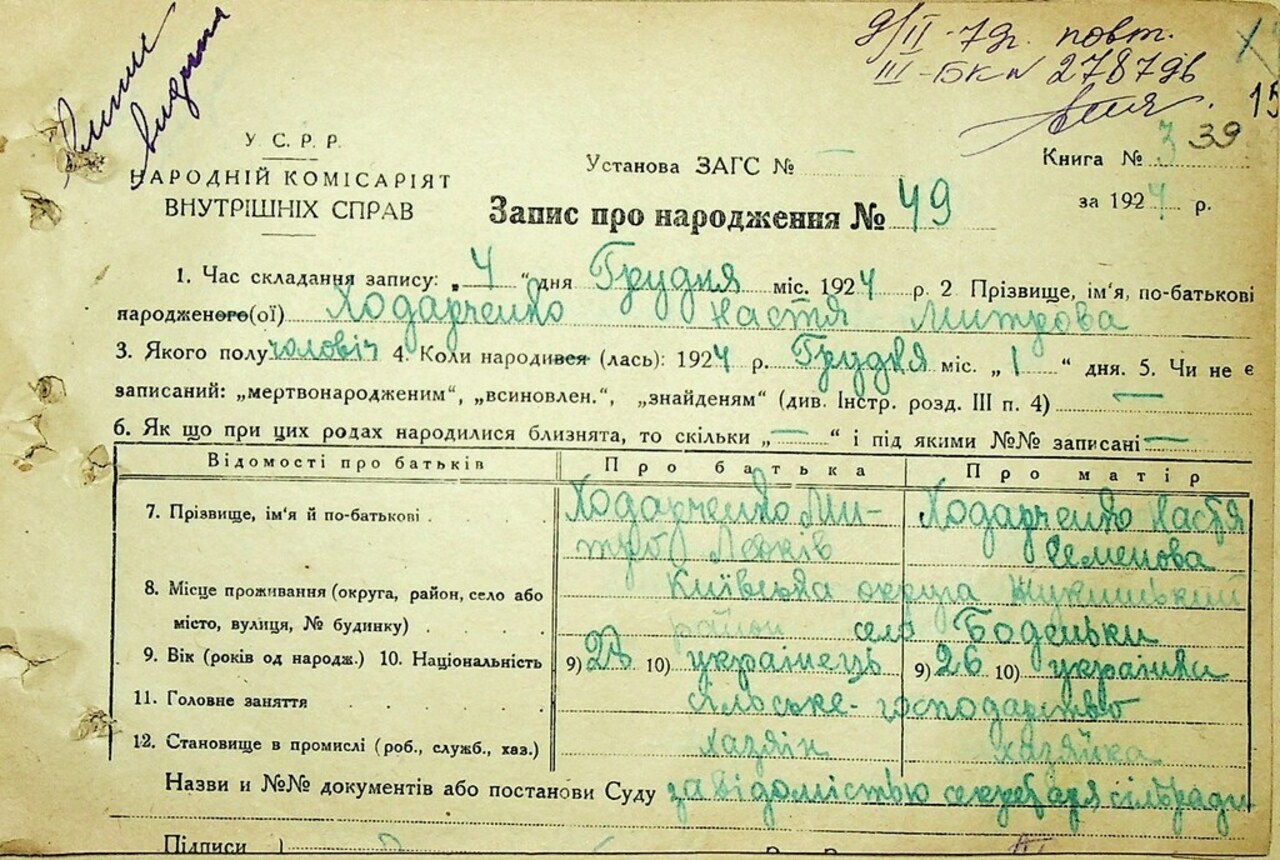 9/II-79г. повт.
III-БК № 278796
15
39
У С. Р. Р.
НАРОДНІЙ КОМІСАРІЯТ
ВНУТРІШНІХ СПРАВ
Установа ЗАГС № —
Книга № 3
за 1924 р.
Запис про народження № 49
1. Час складання запису: „ 4 “ дня Грудня міс. 1924 р. 2 Прізвище, ім'я, по-батькові
народженого(ої) Ходарченко Настя Митрова
3. Якого полу чоловіч 4. Коли народився (лась): 1924 р. Грудня міс. „ 1 “ дня. 5. Чи не є
записаний: „мертвонародженим“, „всиновлен.“, „знайденям“ (див. Інстр. розд. III п. 4) —
6. Як що при цих родах народилися близнята, то скільки „ — “ і під якими №№ записані —
Відомості про батьків Про батька Про матір
7. Прізвище, ім'я й по-батькові . Ходарченко Ми- Ходарченко Настя
тро Семенова
8. Місце проживання (округа, район, село або Київська округа Жукинський
місто, вулиця, № будинку) . . . . район село Боденьки
9. Вік (років од народж.) 10. Національність 9) 10) українець 9) 26 10) українка
11. Головне заняття сільське-господарство
12. Становище в промислі (роб., служб., хаз.) хазяїн хазяйка
Назви и №№ документів або постанови Суду за відомістью секретаря сільради
Підписи